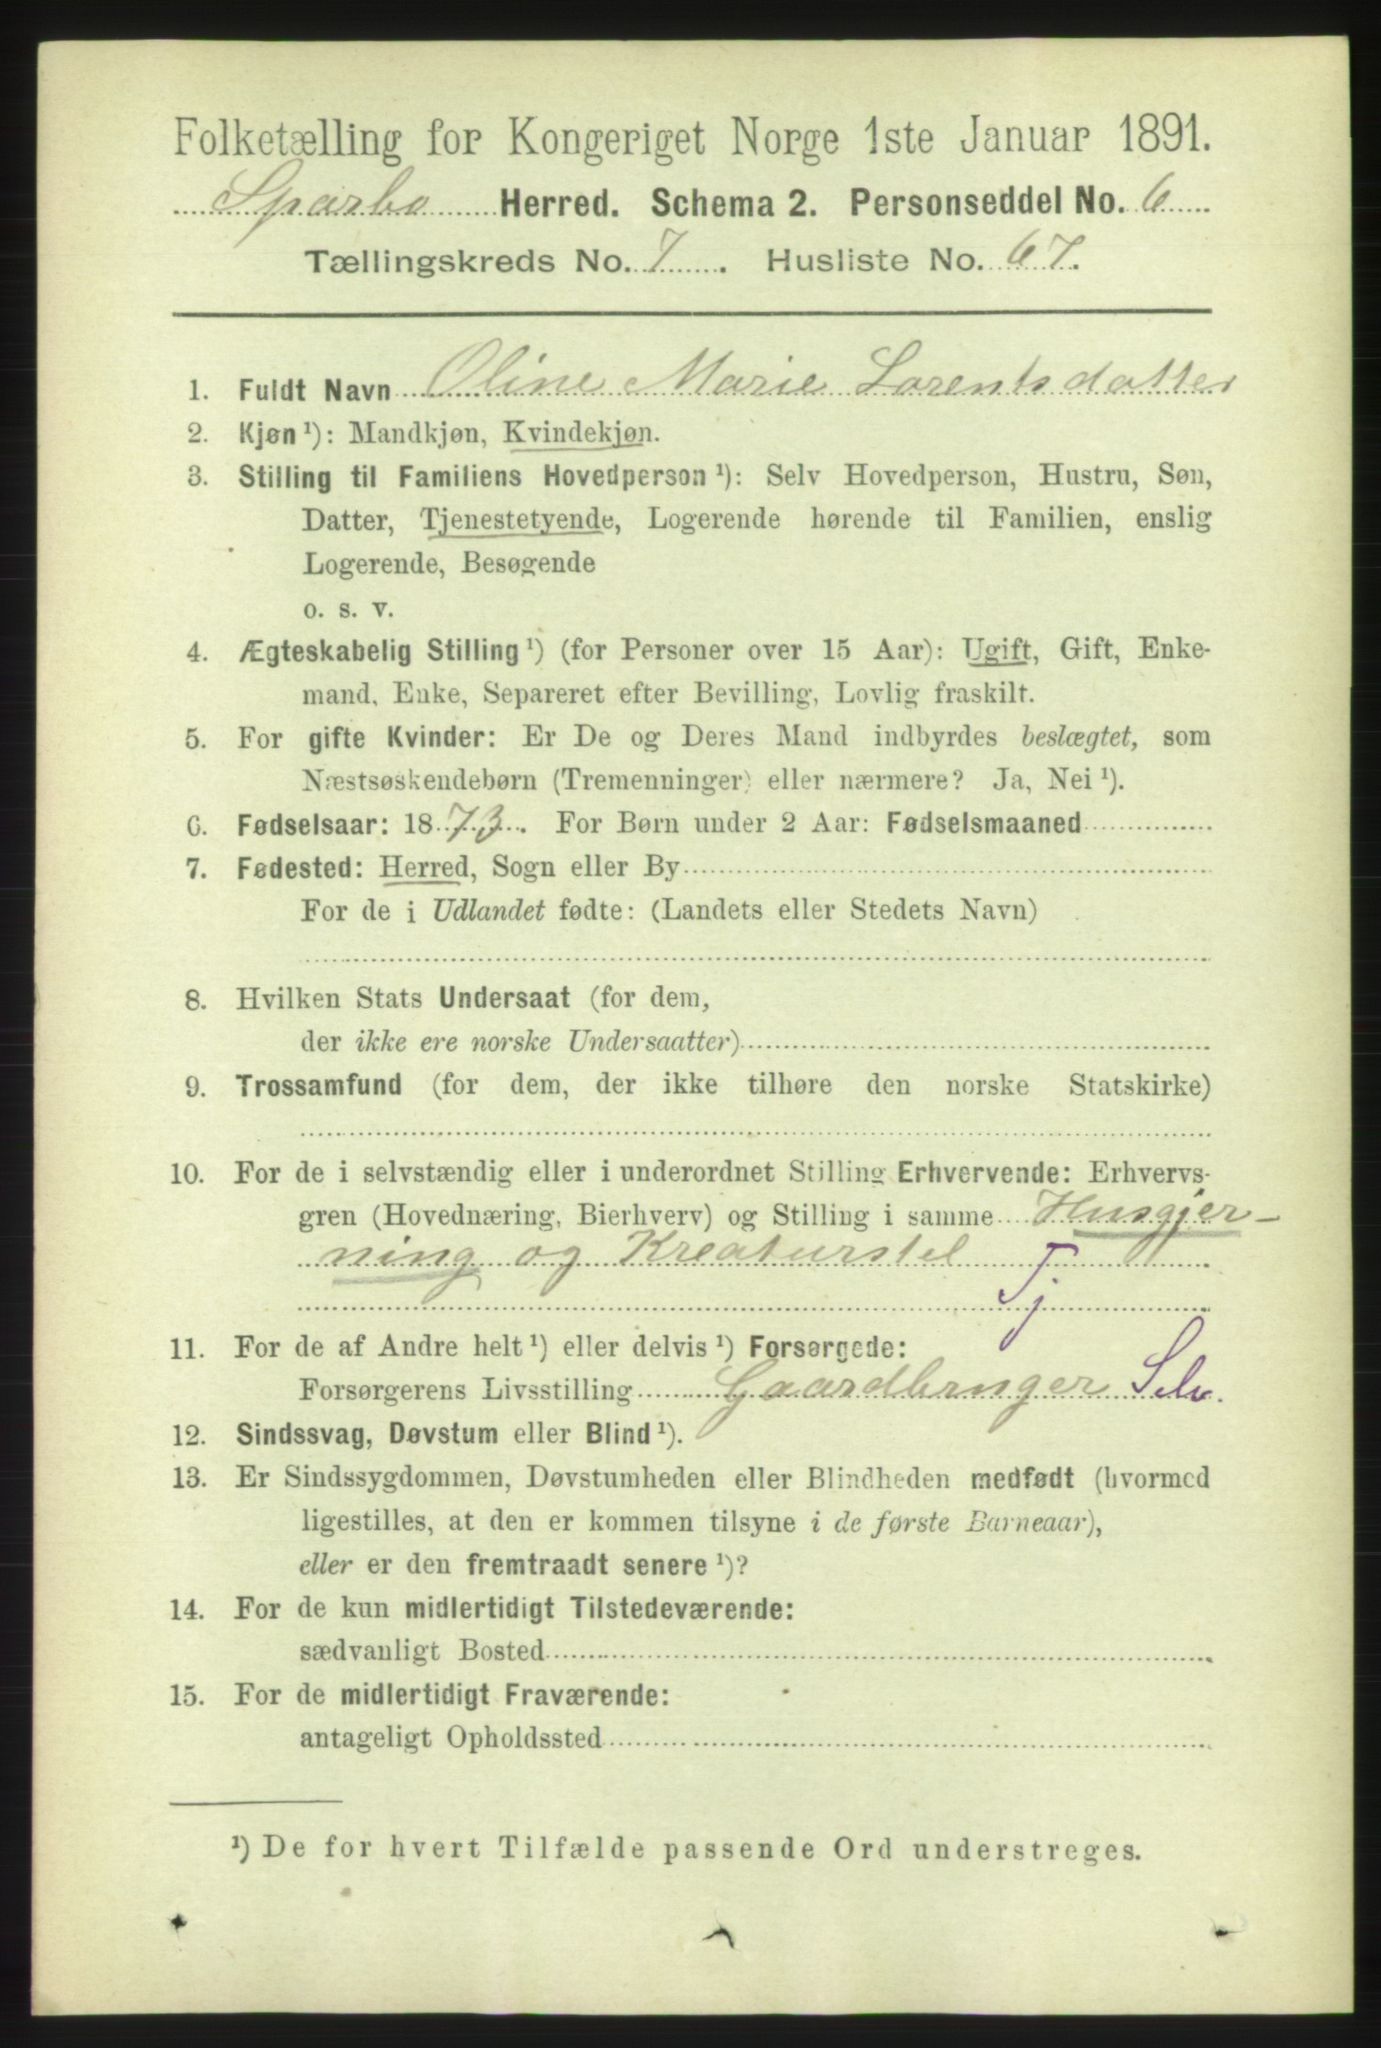 Folketælling for Kongeriget Norge 1ste Januar 1891.
Sparbo Herred. Schema 2. Personseddel No. 6
Tællingskreds No. 7. Husliste No. 67.
1. Fuldt Navn Oline Marie Lorentsdatter
2. Kjøn ¹): Mandkjøn, Kvindekjøn.
3. Stilling til Familiens Hovedperson ¹): Selv Hovedperson, Hustru, Søn,
Datter, Tjenestetyende, Logerende hørende til Familien, enslig
Logerende, Besøgende
o. s. v.
4. Ægteskabelig Stilling ¹) (for Personer over 15 Aar): Ugift, Gift, Enke-
mand, Enke, Separeret efter Bevilling, Lovlig fraskilt.
5. For gifte Kvinder: Er De og Deres Mand indbyrdes beslægtet, som
Næstsøskendebørn (Tremenninger) eller nærmere? Ja, Nei ¹).
6. Fødselsaar: 1873. For Børn under 2 Aar: Fødselsmaaned
7. Fødested: Herred, Sogn eller By
For de i Udlandet fødte: (Landets eller Stedets Navn)
8. Hvilken Stats Undersaat (for dem,
der ikke ere norske Undersaatter)
9. Trossamfund (for dem, der ikke tilhøre den norske Statskirke)
10. For de i selvstændig eller i underordnet Stilling Erhvervende: Erhvervs-
gren (Hovednæring, Bierhverv) og Stilling i samme Husgjer-
ning og Kreaturstel
Tj
11. For de af Andre helt ¹) eller delvis ¹) Forsørgede:
Forsørgerens Livsstilling Gaardbruger Selv.
12. Sindssvag, Døvstum eller Blind ¹).
13. Er Sindssygdommen, Døvstumheden eller Blindheden medfødt (hvormed
ligestilles, at den er kommen tilsyne i de første Barneaar),
eller er den fremtraadt senere ¹)?
14. For de kun midlertidigt Tilstedeværende:
sædvanligt Bosted
15. For de midlertidigt Fraværende:
antageligt Opholdssted
¹) De for hvert Tilfælde passende Ord understreges.